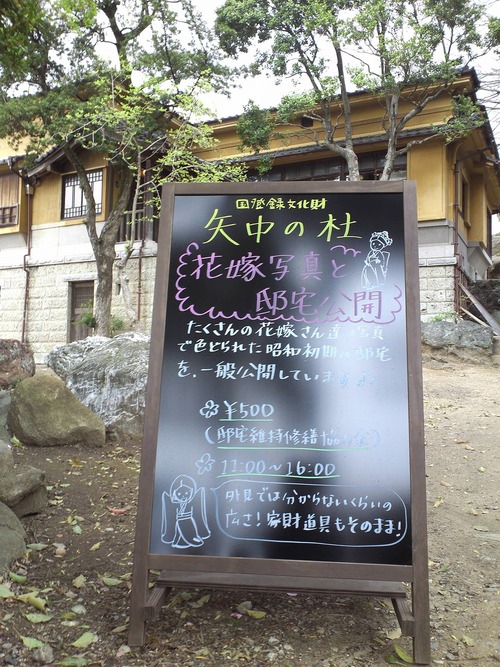 国登録文化財
矢中の杜
花嫁写真と
邸宅公開
たくさんの花嫁さん達の写真
で色どられた昭和初期の邸宅
を、一般公開しています
¥500
(邸宅維持修繕協力金)
11:00〜16:00
外見では分からないくらいの
広さ!家財道具もそのまま!